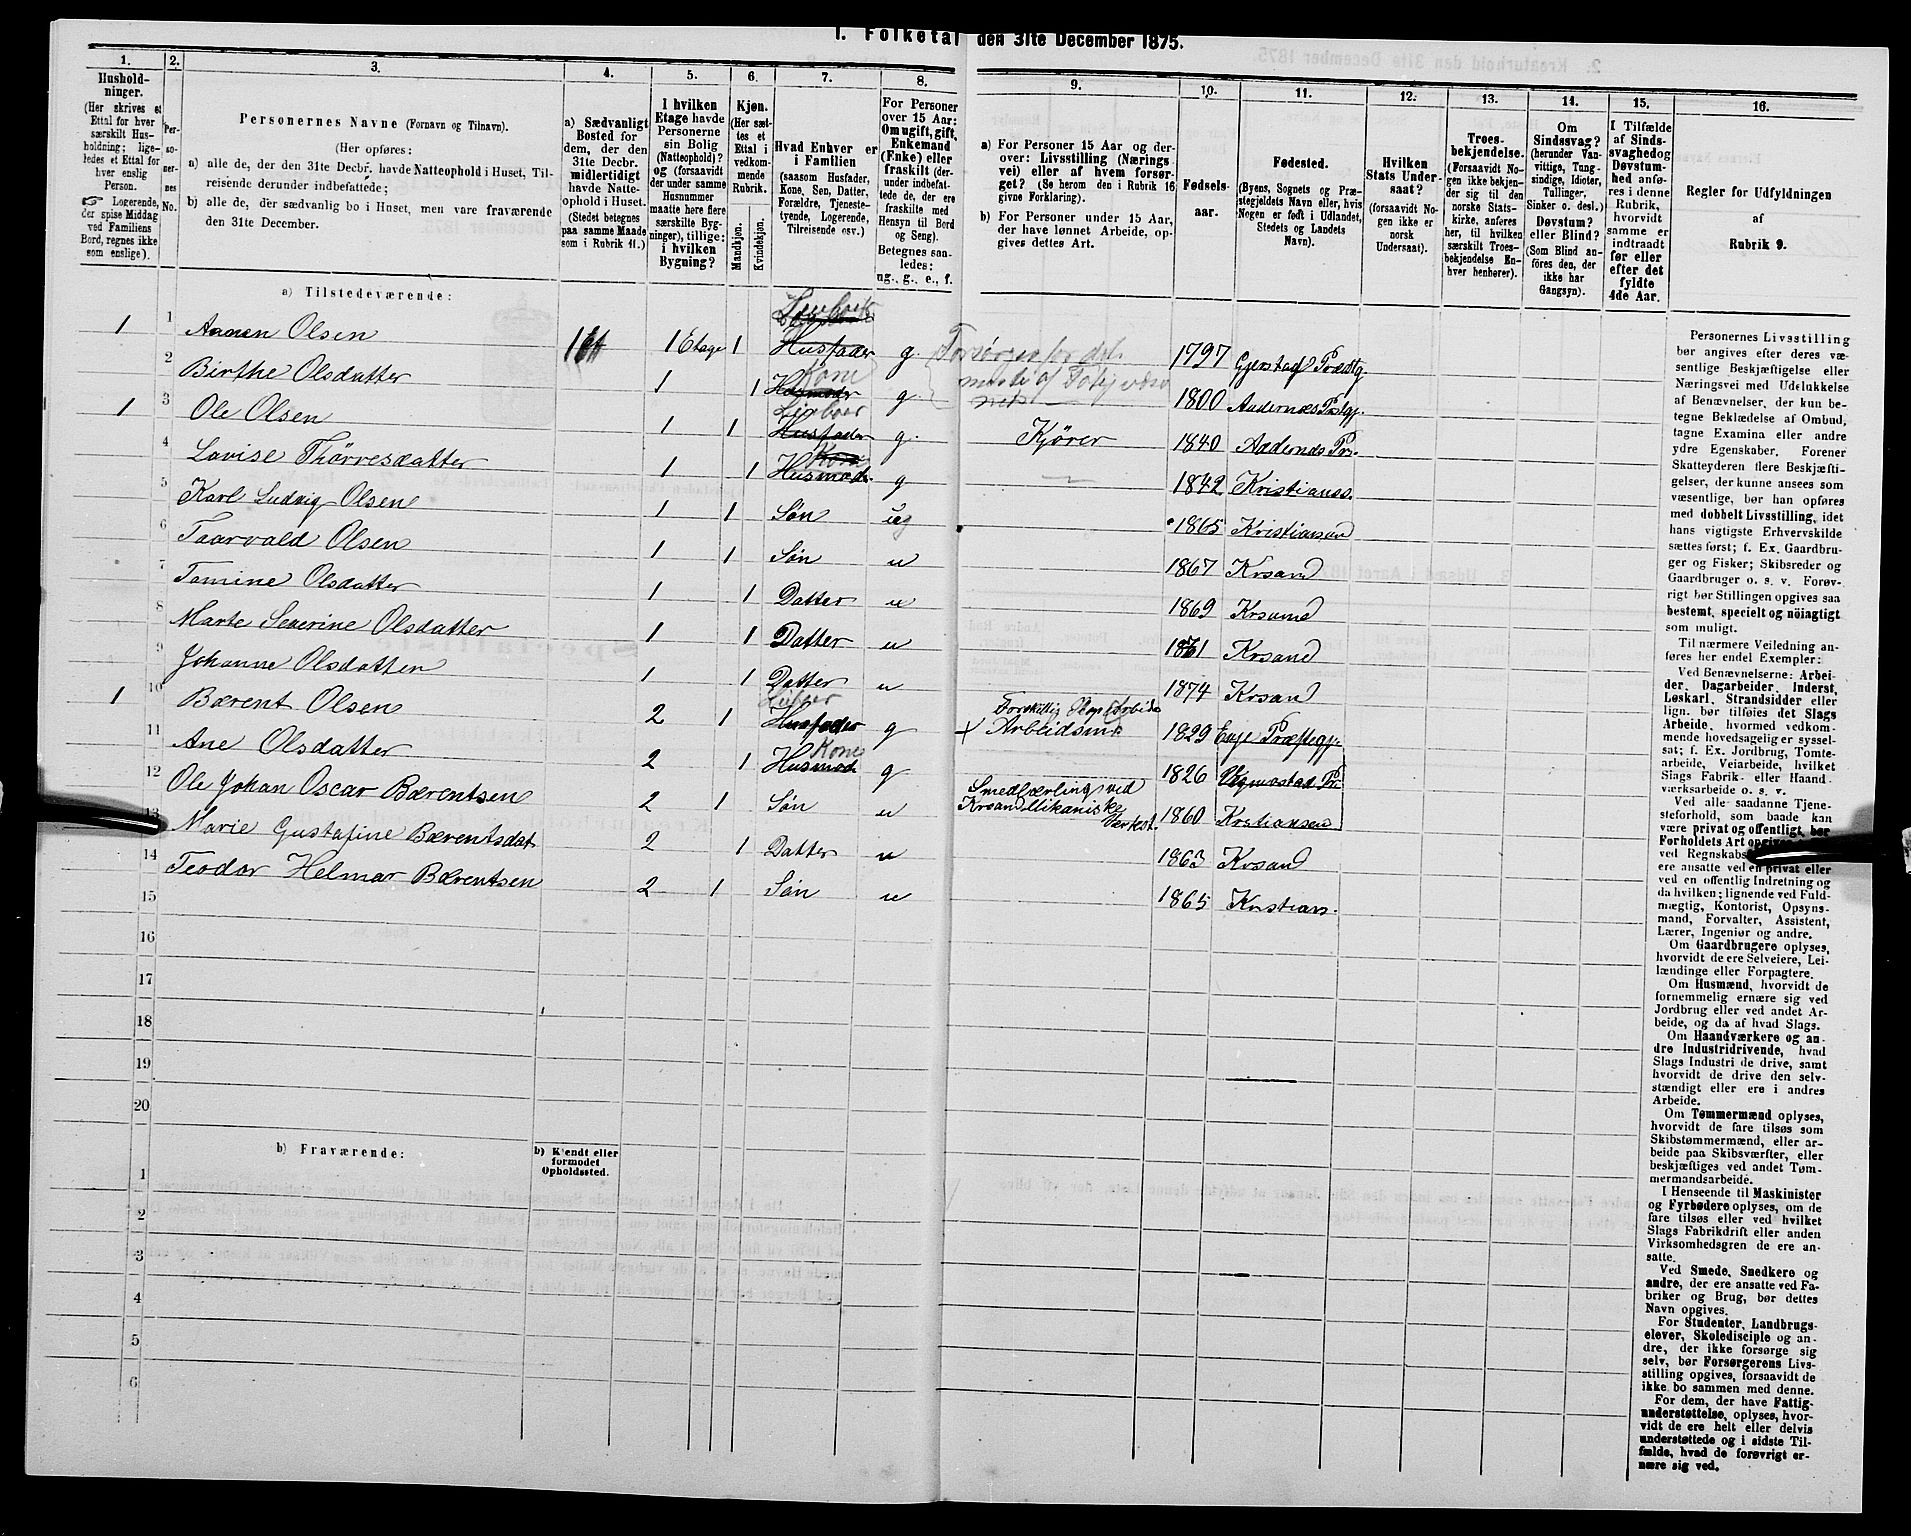 1. Folketal den 31te December 1875.
1. 2. 3. 4. 5. 6. 7. 8. 9. 10. 11. 12. 13. 14. 15. 16.
Hushold-
ninger.
(Her skrives et
Ettal for hver
særskilt Hus-
holdning; lige-
ledes et Ettal for
hver enslig
Person.
Logerende,
der spise Middag
ved Familiens
Bord, regnes ikke
som enslige).
Per-
so-
ner-
nes
No.
Personernes Navne (Fornavn og Tilnavn).
(Her opføres:
a) alle de, der den 31te Decbr. havde Natteophold i Huset, Til-
reisende derunder indbefattede;
b) alle de, der sædvanlig bo i Huset, men vare fraværende
den 31te December.
a) Sædvanligt
Bosted for
dem, der den
31te Decbr.
midlertidigt
havde Natte-
ophold i Huset.
(Stedet betegnes
paa samme Maade
som i Rubrik 11.)
I hvilken
Etage havde
Personerne
sin Bolig
(Natteophold)?
og (forsaavidt
der under samme
Husnummer
maatte høre flere
særskilte Byg-
ninger), tillige:
i hvilken
Bygning?
Kjøn.
(Her sæt-
tes et
Ettal i
vedkom-
mende
Rubrik.
Mandkjøn.
Kvindekjøn.
Hvad Enhver er
i Familien
(saasom Husfader,
Kone, Søn, Datter,
Forældre, Tjeneste-
tyende, Logerende,
Tilreisende osv.)
For Personer
over 15 Aar:
Om ugift, gift,
Enkemand
(Enke) eller
fraskilt (der-
under indbefat-
tede de, der ere
fraskilte med
Hensyn til Bord
og Seng).
Betegnes saa-
ledes:
ug., g., e., f.
a) For Personer 15 Aar og der-
over: Livsstilling (Nærings-
vei) eller af hvem forsør-
get? (Se herom den i Rubrik 16
givne Forklaring).
b) For Personer under 15 Aar,
der have lønnet Arbeide, op-
gives dettes Art.
Fødsels-
aar.
Fødested.
(Byens, Sognets og Præ-
stegjeldets Navn eller, hvis
Nogen er født i Udlandet,
Stedets og Landets
Navn).
Hvilken
Stats Under-
saat?
(forsaavidt No-
gen ikke er
norsk
Undersaat).
Troes-
bekjendelse.
(Forsaavidt No-
gen ikke bekjen-
der sig til den
norske Stats-
kirke, anføres
her, til hvilken
særskilt Troes-
bekjendelse En-
hver henhører).
Om
Sindssvag?
(herunder Van-
vittige, Tung-
sindige, Idioter,
Tullinger,
Sinker o. desl.)
Døvstum?
eller Blind?
(Som Blind an-
føres den, der
ikke har
Gangsyn).
I Tilfælde
af Sinds-
svaghed og
Døvstum-
hed anfø-
res i denne
Rubrik,
hvorvidt
samme er
indtraadt
før eller
efter det
fyldte
4de Aar.
Regler for Udfyldningen
af
Rubrik 9.
a) Tilstedeværende:
1 1 Aanen Olsen 1 Etage 1 Husfader g. 1797 Gjerstad Prædtg
2 Birthe Olsdatter 1 1 Husmoder Kone g 1800
1 3 Ole Olsen 1 1 Husfader g. Kjører 1840
4 Lovise Thorresdatter 1 1 Husmod. Kone g 1842 Kristianss.
5 Karl Ludvig Olsen 1 1 Søn ug 1865 Kristiansan
6 Taarvald Olsen 1 1 Søn u 1867 Krsand
7 Tomine Olsdatter 1 1 Datter u 1869 Krsand
8 Marte Severine Olsdatter 1 1 Datter u 1871 Krsand
9 Johanne Olsdatter 1 1 Datter u 1874 Krsand
1 10 Bærent Olsen 2 1 Husfader g Arbeidsm. 1829
11 Ane Olsdatter 2 1 Husmod. Kone g 1826
12 Ole Johan Oscar Bærentsen 2 1 Søn u Smedlærling ved
Krsand Mikaniske
Værkst. 1860 Krstiansen
13 Marie Gustafine Bærentsdat 2 1 Datter u 1863 Krsand
14 Teodor Helmar Bærentsen 2 1 Søn u 1865 Krstians.
15
16
17
18
19
20
b) Fraværende:
b) Kjendt eller
formodet
Opholdssted.
1
2
3
4
5
6
Personernes Livsstilling
bør angives efter deres væ-
sentlige Beskjæftigelse eller
Næringsvei med Udelukkelse
af Benævnelser, der kun be-
tegne Beklædelse af Ombud,
tagne Examina eller andre
ydre Egenskaber. Forener
Skatteyderen flere Beskjæfti-
gelser, der kunne ansees som
væsentlige, bør han opføres
med dobbelt Livsstilling, idet
hans vigtigste Erhvervskilde
sættes først; f. Ex. Gaardbru-
ger og Fisker; Skibsreder og
Gaardbruger o. s. v. Forøv-
rigt bør Stillingen opgives saa
bestemt, specielt og nöiagtigt
som muligt.
Til nærmere Veiledning an-
føres her endel Exempler:
Ved Benævnelserne: Arbei-
der, Dagarbeider, Inderst,
Løskarl, Strandsidder eller
lign. bør tilføies det Slags
Arbeide, hvormed vedkom-
mende hovedsagelig er syssel-
sat; f. Ex. Jordbrug, Tomte-
arbeide, Veiarbeide, hvilket
Slags Fabrik- eller Haand-
værksarbeide o. s. v.
Ved alle saadanne Tjene-
steforhold, som baade kan
være privat og offentligt, bør
Forholdets Art opgives
ved Regnskabs
ere ansatte ved en privat eller
ved en offentlig Indretning og
da hvilken; lignende ved Fuld-
mægtig, Kontorist, Opsyns-
mand, Forvalter, Assistent,
Lærer, Ingeniør og andre.
Om Gaardbrugere oplyses,
hvorvidt de ere Selveiere, Lei-
lændinge eller Forpagtere.
Om Husmænd, hvorvidt de
fornemmelig ernære sig ved
Jordbrug eller ved andet Ar-
beide, og da af hvad Slags.
Om Haandværkere og an-
dre Industridrivende, hvad
Slags Industri de drive, samt
hvorvidt de drive den selv-
stændigt eller ere i andres
Arbeide.
Om Tømmermænd oplyses,
hvorvidt de fare tilsøs som
Skibstømmermænd, eller ar-
beide paa Skibsværfter, eller
beskjæftiges ved andet Tøm-
mermandsarbeide.
I Henseende til Maskinister
og Fyrbødere oplyses, om de
fare tilsøs eller ved hvilket
Slags Fabrikdrift eller anden
Virksomhedsgren de ere an-
satte.
Ved Smede, Snedkere og
andre, der ere ansatte ved Fa-
briker og Brug, bør dettes
Navn opgives.
For Studenter, Landbrugs-
elever, Skoledisciple og an-
dre, der ikke forsørge sig
selv, bør Forsørgerens Livs-
stilling opgives, forsaavidt de
ikke bo sammen med denne.
For dem, der have Fattig-
understøttelse, oplyses, hvor-
vidt de ere helt eller delvis
understøttede og i sidste Til-
fælde, hvad de forøvrigt er-
nære sig ved.